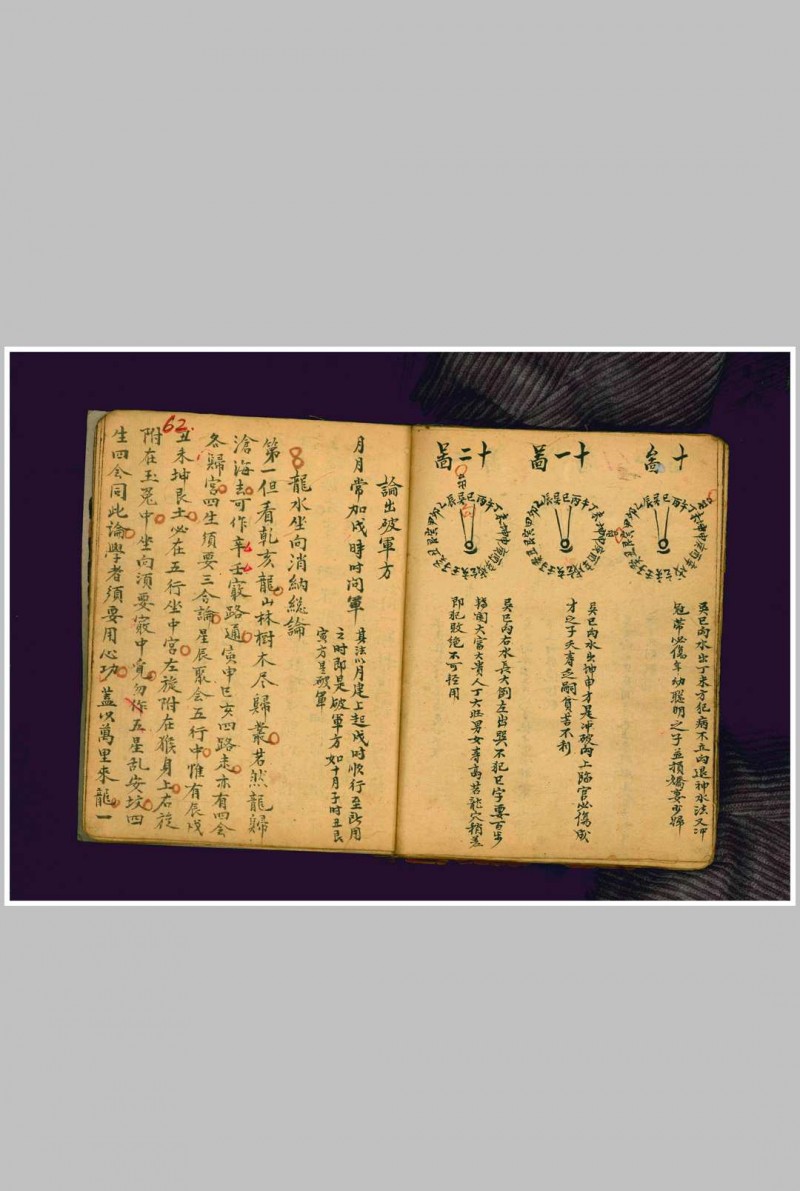 十啚
巽巳丙水出丁未方犯病不立向退神水法又冲
冠帶必傷年幼聰明之子並損嬌妻少婦
十一啚
巽巳丙水出坤申才是冲破向上臨官必傷成
才之子夭壽乏嗣貧苦不利
十二啚
巽巳丙右水長大倒左出巽不犯巳字要百步
轉闌大富大貴人丁大旺男女壽高若龍穴稍差
即犯敗絕不可輕用
論出破軍方
月月常加戌時時问軍
其法以月建上起戌时順行至所用
之时即是破軍方如十月子时丑艮
寅方是破軍
8
龍水坐向消納縂論
第一但看乾亥龍山林樹木尽歸叢若然龍歸
滄海去可作辛壬竅路通寅申巳亥四路走亦有四会
各歸宮四生須要三合論星辰聚会五行中惟有辰戌
62.
丑未坤艮土必在五行坐中宮左旋附在猴身上右旋
附在玉兔中坐向須要竅中覓勿作五星乱安坟四
生四会同此論學者須要用心功盖以萬里來龍一